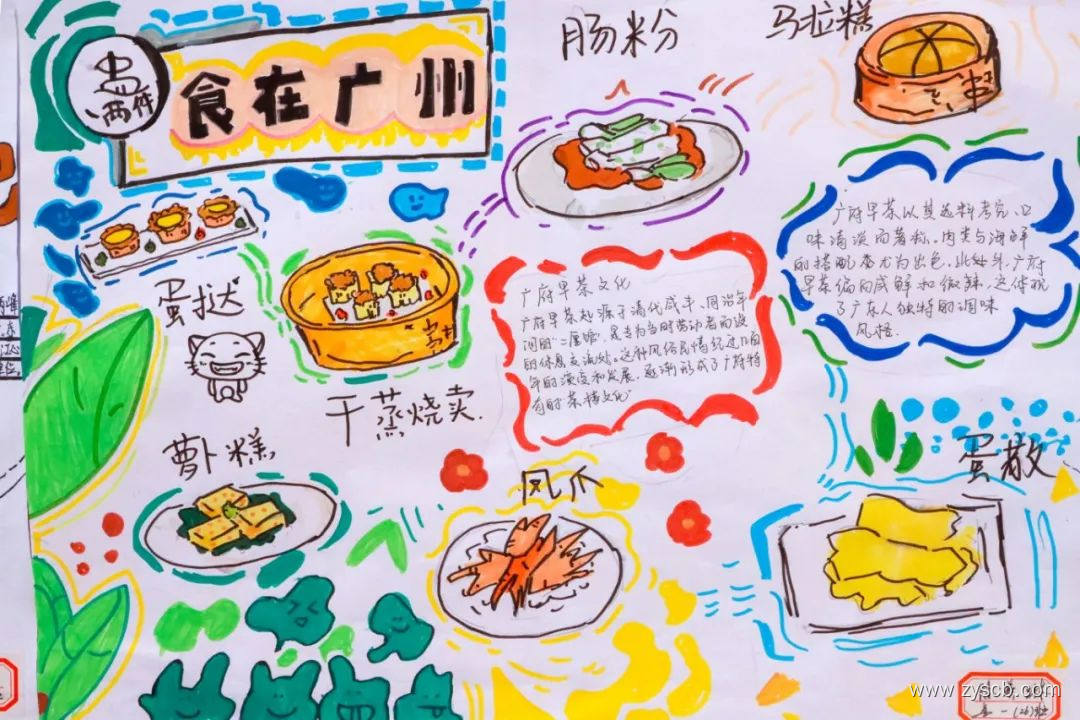 盅
两件
食在广州
肠粉
马拉糕
蛋挞
干蒸烧卖
萝卜糕
凤爪
蛋散
广府早茶文化
广府早茶起源于清代咸丰、同治年
间的"二厘馆",是专为当时劳动者而设
的休息交流站。这种风俗民情经过几百
年的演变和发展,逐渐形成了广府特
有的"茶楼文化"
广府早茶以其选料考究、口
味清淡而著称。肉类与海鲜
的搭配尤为出色,此外,广府
早茶偏向咸鲜和微辣,这体现
了广东人独特的调味
风格.
www.zyscb.com